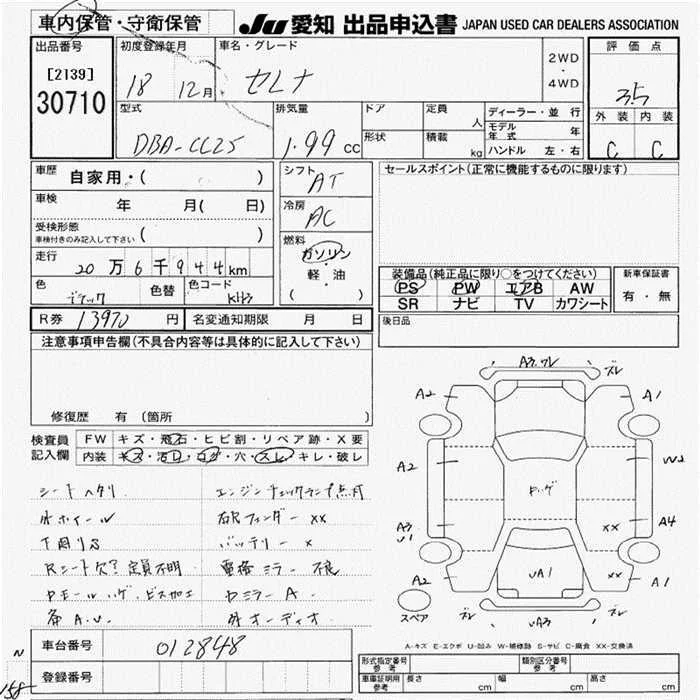 車内保管・守衛保管 JU 愛知 出品申込書 JAPAN USED CAR DEALERS ASSOCIATION
出品番号 初度登録年月 車名・グレード 評価点
[2139] 18 12月 セレナ 2WD・4WD 3.5
30710
型式 排気量 ドア 定員 人 ディーラー・並行 外装 内装
モデル年式 年
DBA-CC25 1.99 cc 形状 積載 kg ハンドル 左・右 C C
車歴 自家用・( ) シフト AT セールスポイント(正常に機能するものに限ります)
車検 年 月( 日) 冷房 AC
受検形態 ( )
車検付きのみ記入して下さい
燃料 ガソリン・軽油
( )
走行 20万6千944km
装備品(純正品に限り○をつけてください) 新車保証書
色 ブラック 色替 色コード KH3
PS PW エアB AW 有・無
SR ナビ TV カワシート
R券 13970円 名変通知期限 月 日 後日品
注意事項申告欄(不具合内容等は具体的に記入して下さい)
修復歴 有(箇所
検査員記入欄 FW キズ・飛石・ヒビ割・リペア跡・X要
内装 キズ・汚レ・コゲ・穴・スレ・キレ・破レ
シートヘタリ エンジンチェックランプ点灯
外ホイール 右Rフェンダー XX
下廻りS バッテリー ×
Rシート欠? 定員不明 電格ミラー 不良
Pモールハゲ、ビス加工 Dミラー A
各A.U. 外オーディオ
車台番号 012848
登録番号
N
158
A3.ワレ
ズレ
A2 A1
A2 W2
ハゲ
A3 XX A4
U1
A2 UA1 XX A1
ズレ UA3 ズレ
スペア
A-キズ E-エクボ U-凹み W-補修跡 S-サビ C-腐食 XX-交換済
型式指定番号 参考 類別区分番号 参考
車庫証明用 参考 長さ cm 幅 cm 高さ cm